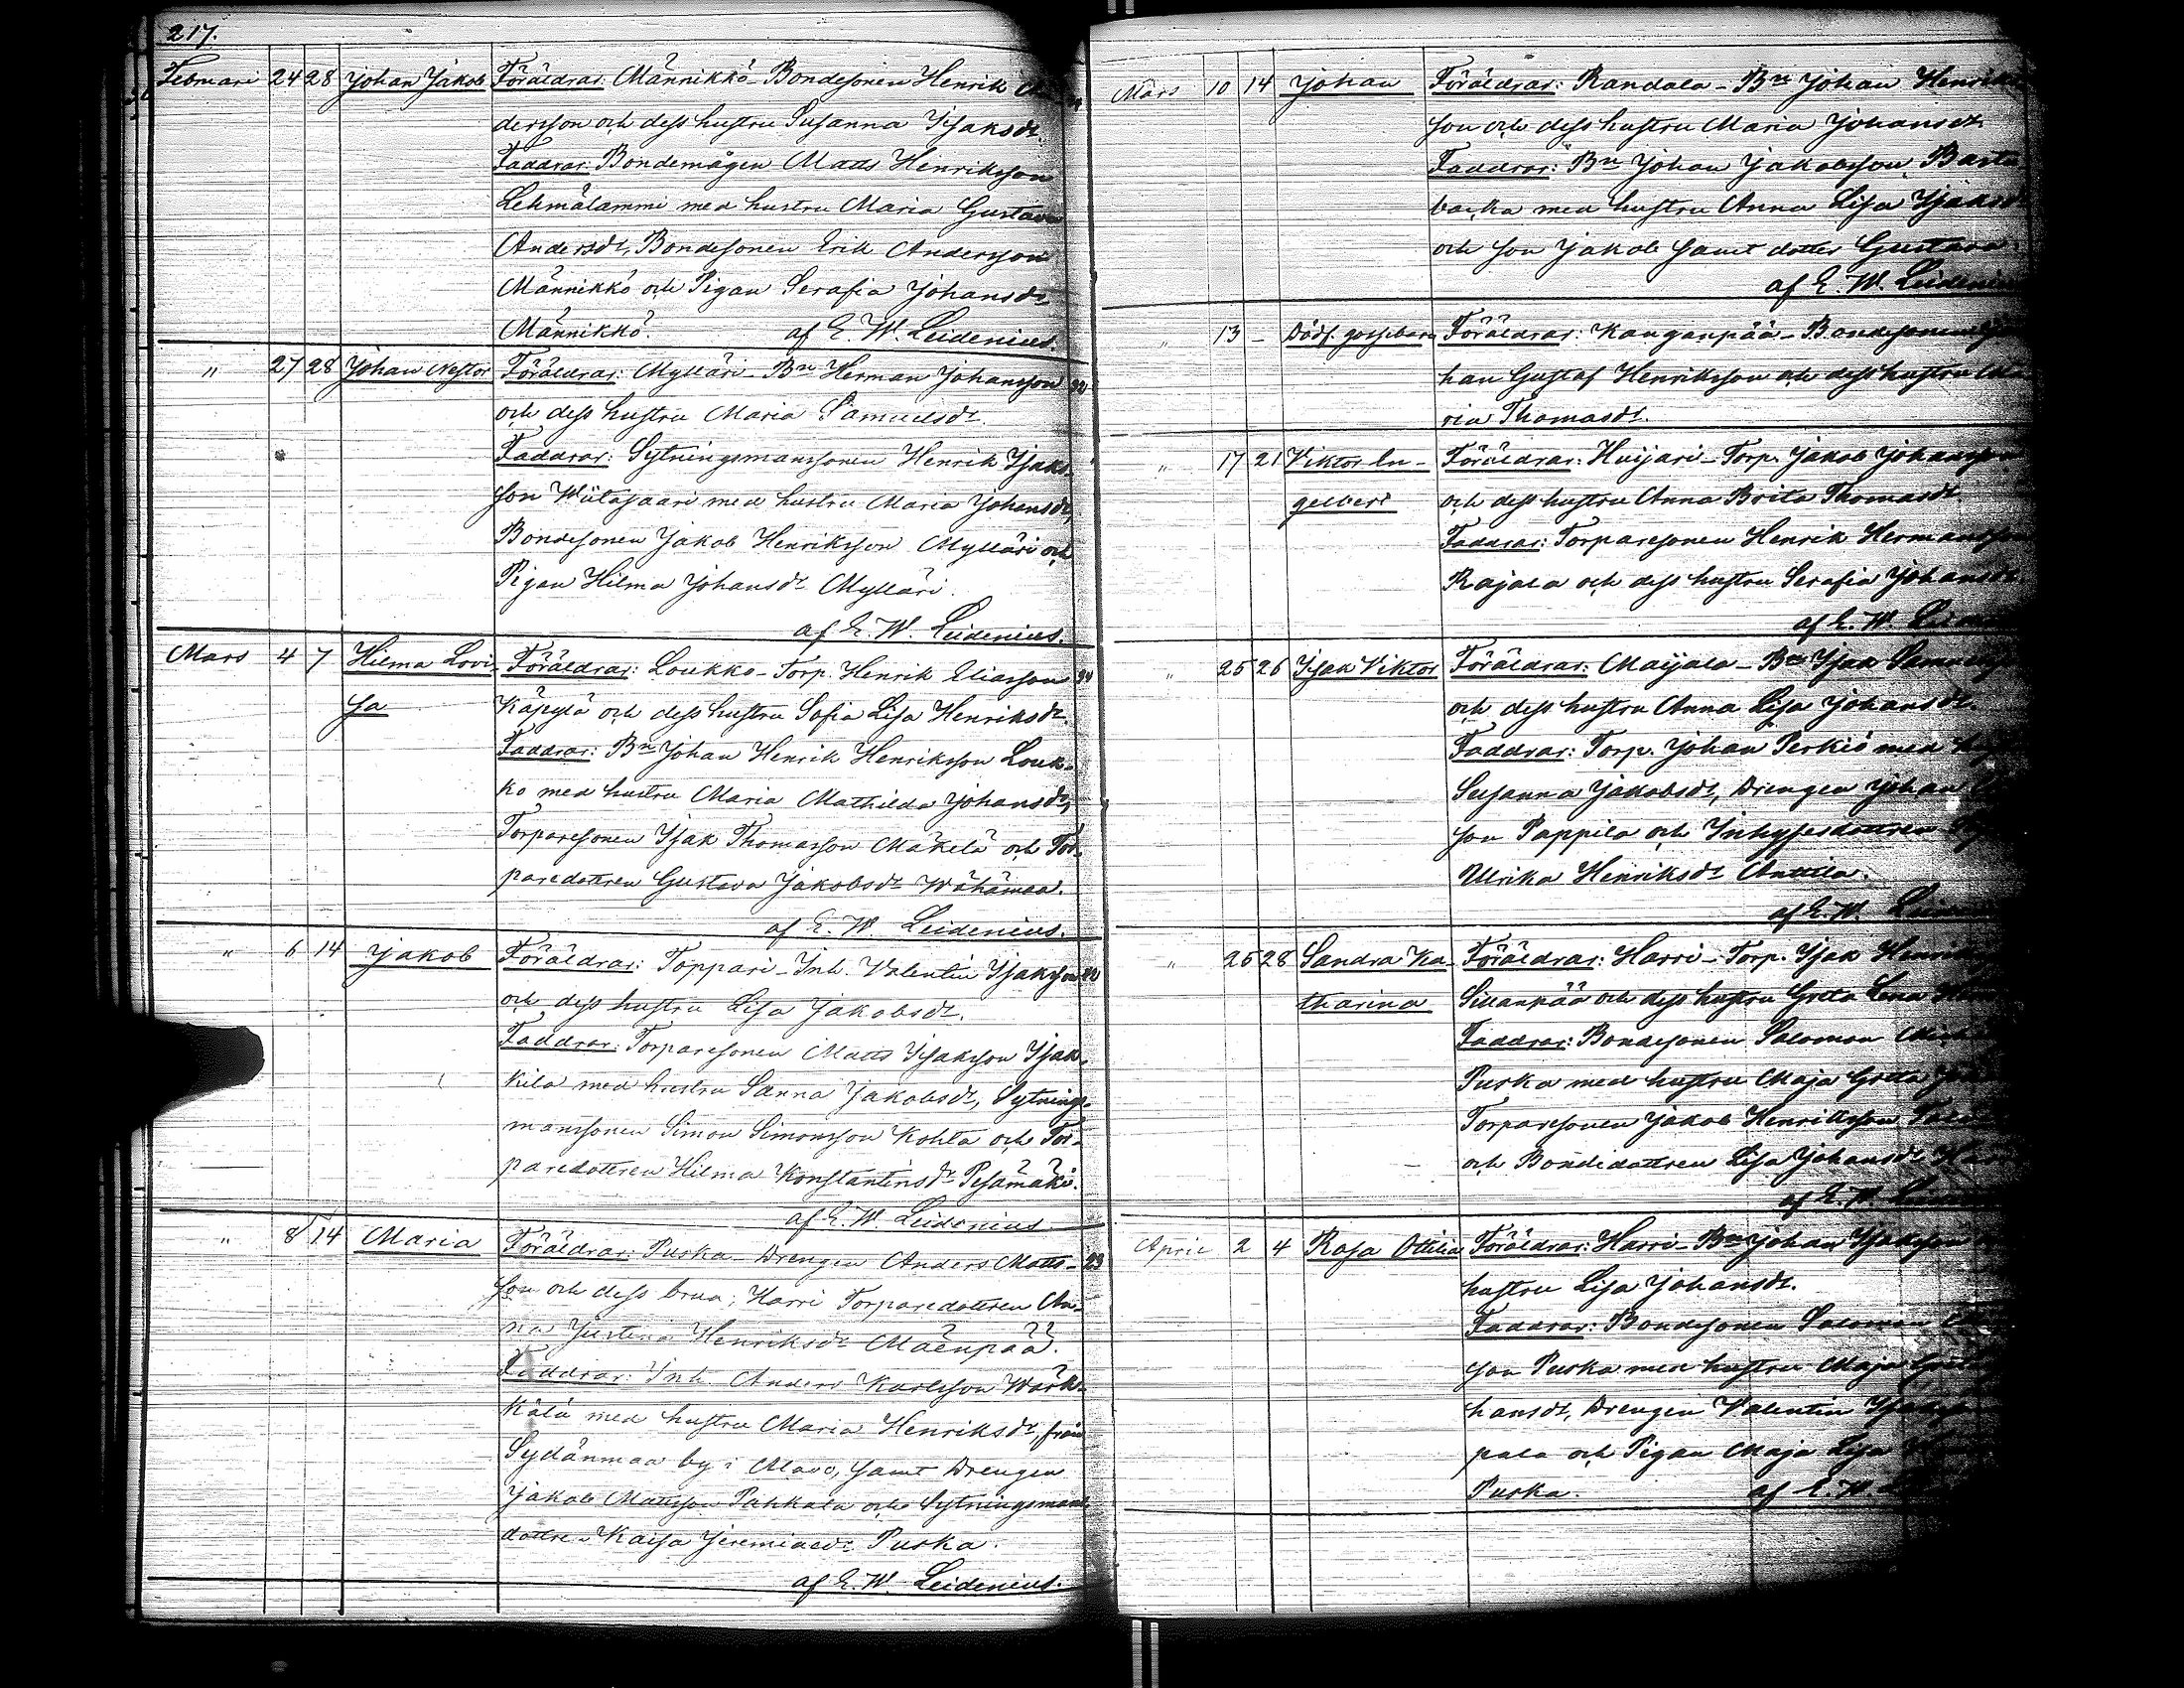 217.
Februari 24 28 Johan Jakob Föräldrar: Männikkö-Bondesonen Henrik An-
dersson och dess hustru Susanna Isaksdr.
Faddrar: Bondemågen Matts Henriksson
Lehmälammi med hustru Maria Gustava
Andersdr, Bondesonen Erik Andersson
Männikkö och Pigan Serafia Johansdr
Männikkö. af E. W. Leidenius.
" 27 28 Johan Nestor Föräldrar: Mylläri-Bn Herman Johansson
och dess hustru Maria Samuelsdr.
Faddrar: Sytningsmanssonen Henrik Isaks-
son Wiitasaari med hustru Maria Johansdr,
Bondesonen Jakob Henriksson Mylläri och
Pigan Hilma Johansdr Mylläri.
af E. W. Leidenius.
Mars 4 7 Hilma Lovi- Föräldrar: Loukko-Torp. Henrik Eliasson
sa Käpylä och dess hustru Sofia Lisa Henriksdr.
Faddrar: Bn Johan Henrik Henriksson Louk-
ko med hustru Maria Mathilda Johansdr,
Torparesonen Isak Thomasson Mäkelä och Tor-
paredottren Gustava Jakobsdr Wähämaa.
af E. W. Leidenius.
" 6 14 Jakob Föräldrar: Toppari-Inh. Valentin Isaksson
och dess hustru Lisa Jakobsdr.
Faddrar: Torparesonen Matts Isaksson Isak-
kila med hustru Sanna Jakobsdr, Sytnings-
manssonen Simon Simonsson Kohta och Tor-
paredottren Hilma Konstantinsdr Pesämäki.
af E. W. Leidenius.
" 8 14 Maria Föräldrar: Puska-Drengen Anders Matts- 23
son och dess brud, Harri Torparedottren An-
na Justina Henriksdr Mäenpää.
Faddrar: Inh. Anders Karlsson Wärk-
kälä med hustru Maria Henriksdr, från
Sydänmaa by i Alavo, samt Drengen
Jakob Mattsson Pahkala och Sytningsmans
dottren Kaisa Jeremiaedr Puska.
af E. W. Leidenius.
Mars 10 14 Johan Föräldrar: Randala-Bn Johan Henriks
son och dess hustru Maria Johansdr.
Faddrar: Bn Johan Jakobsson Basta
backa med hustru Anna Lisa Isaksdr
och son Jakob samt dotter Gustava.
af E. W. Leidenius
" 13 - Dödf. gossebarn Föräldrar: Kanganpää-Bondesonen Jo
han Gustaf Henriksson och dess hustru Ma
ria Thomasdr.
" 17 21 Viktor En- Föräldrar: Huijari-Torp. Jakob Johansson
gelbert och dess hustru Anna Brita Thomasdr
Faddrar: Torparesonen Henrik Hermansson
Rajala och dess hustru Serafia Johansdr
af E. W.
" 25 26 Isak Viktor Föräldrar: Maijala-Bn Isak Samuels
och dess hustru Anna Lisa Johansdr.
Faddrar: Torp. Johan Perkiö med
Susanna Jakobsdr, Drengen Johan
son Pappila och Inhysesdottren
Ulrika Henriksdr Anttila.
af E. W.
" 25 28 Sandra Ka- Föräldrar: Harri-Torp. Isak Henriks
tharina Sillanpää och dess hustru Greta Lena
Faddrar: Bondesonen Salomon
Puska med hustru Maja Greta
Torparesonen Jakob Henriksson
och Bondedottren Lisa Johansdr
af E. W.
April 2 4 Rosa Ottilia Föräldrar: Harri-Bn Johan Isaksson
hustru Lisa Johansdr.
Faddrar: Bondesonen Salomon
son Puska med hustru Maja Greta
hansdr, Drengen Valentin
pala och Pigan Maja Lisa
Puska. af E. W.